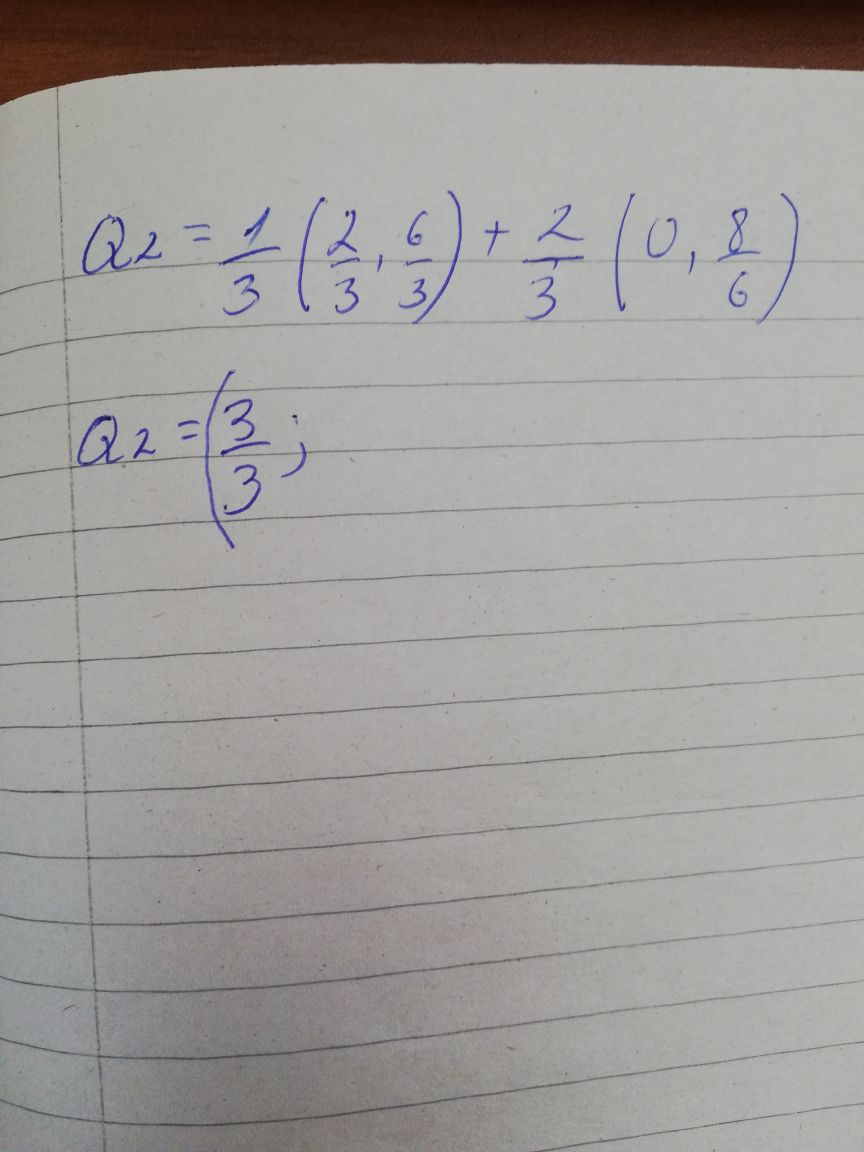 Q2 = 1/3 (2/3, 6/3) + 2/3 (0, 8/6)
Q2 = (3/3;